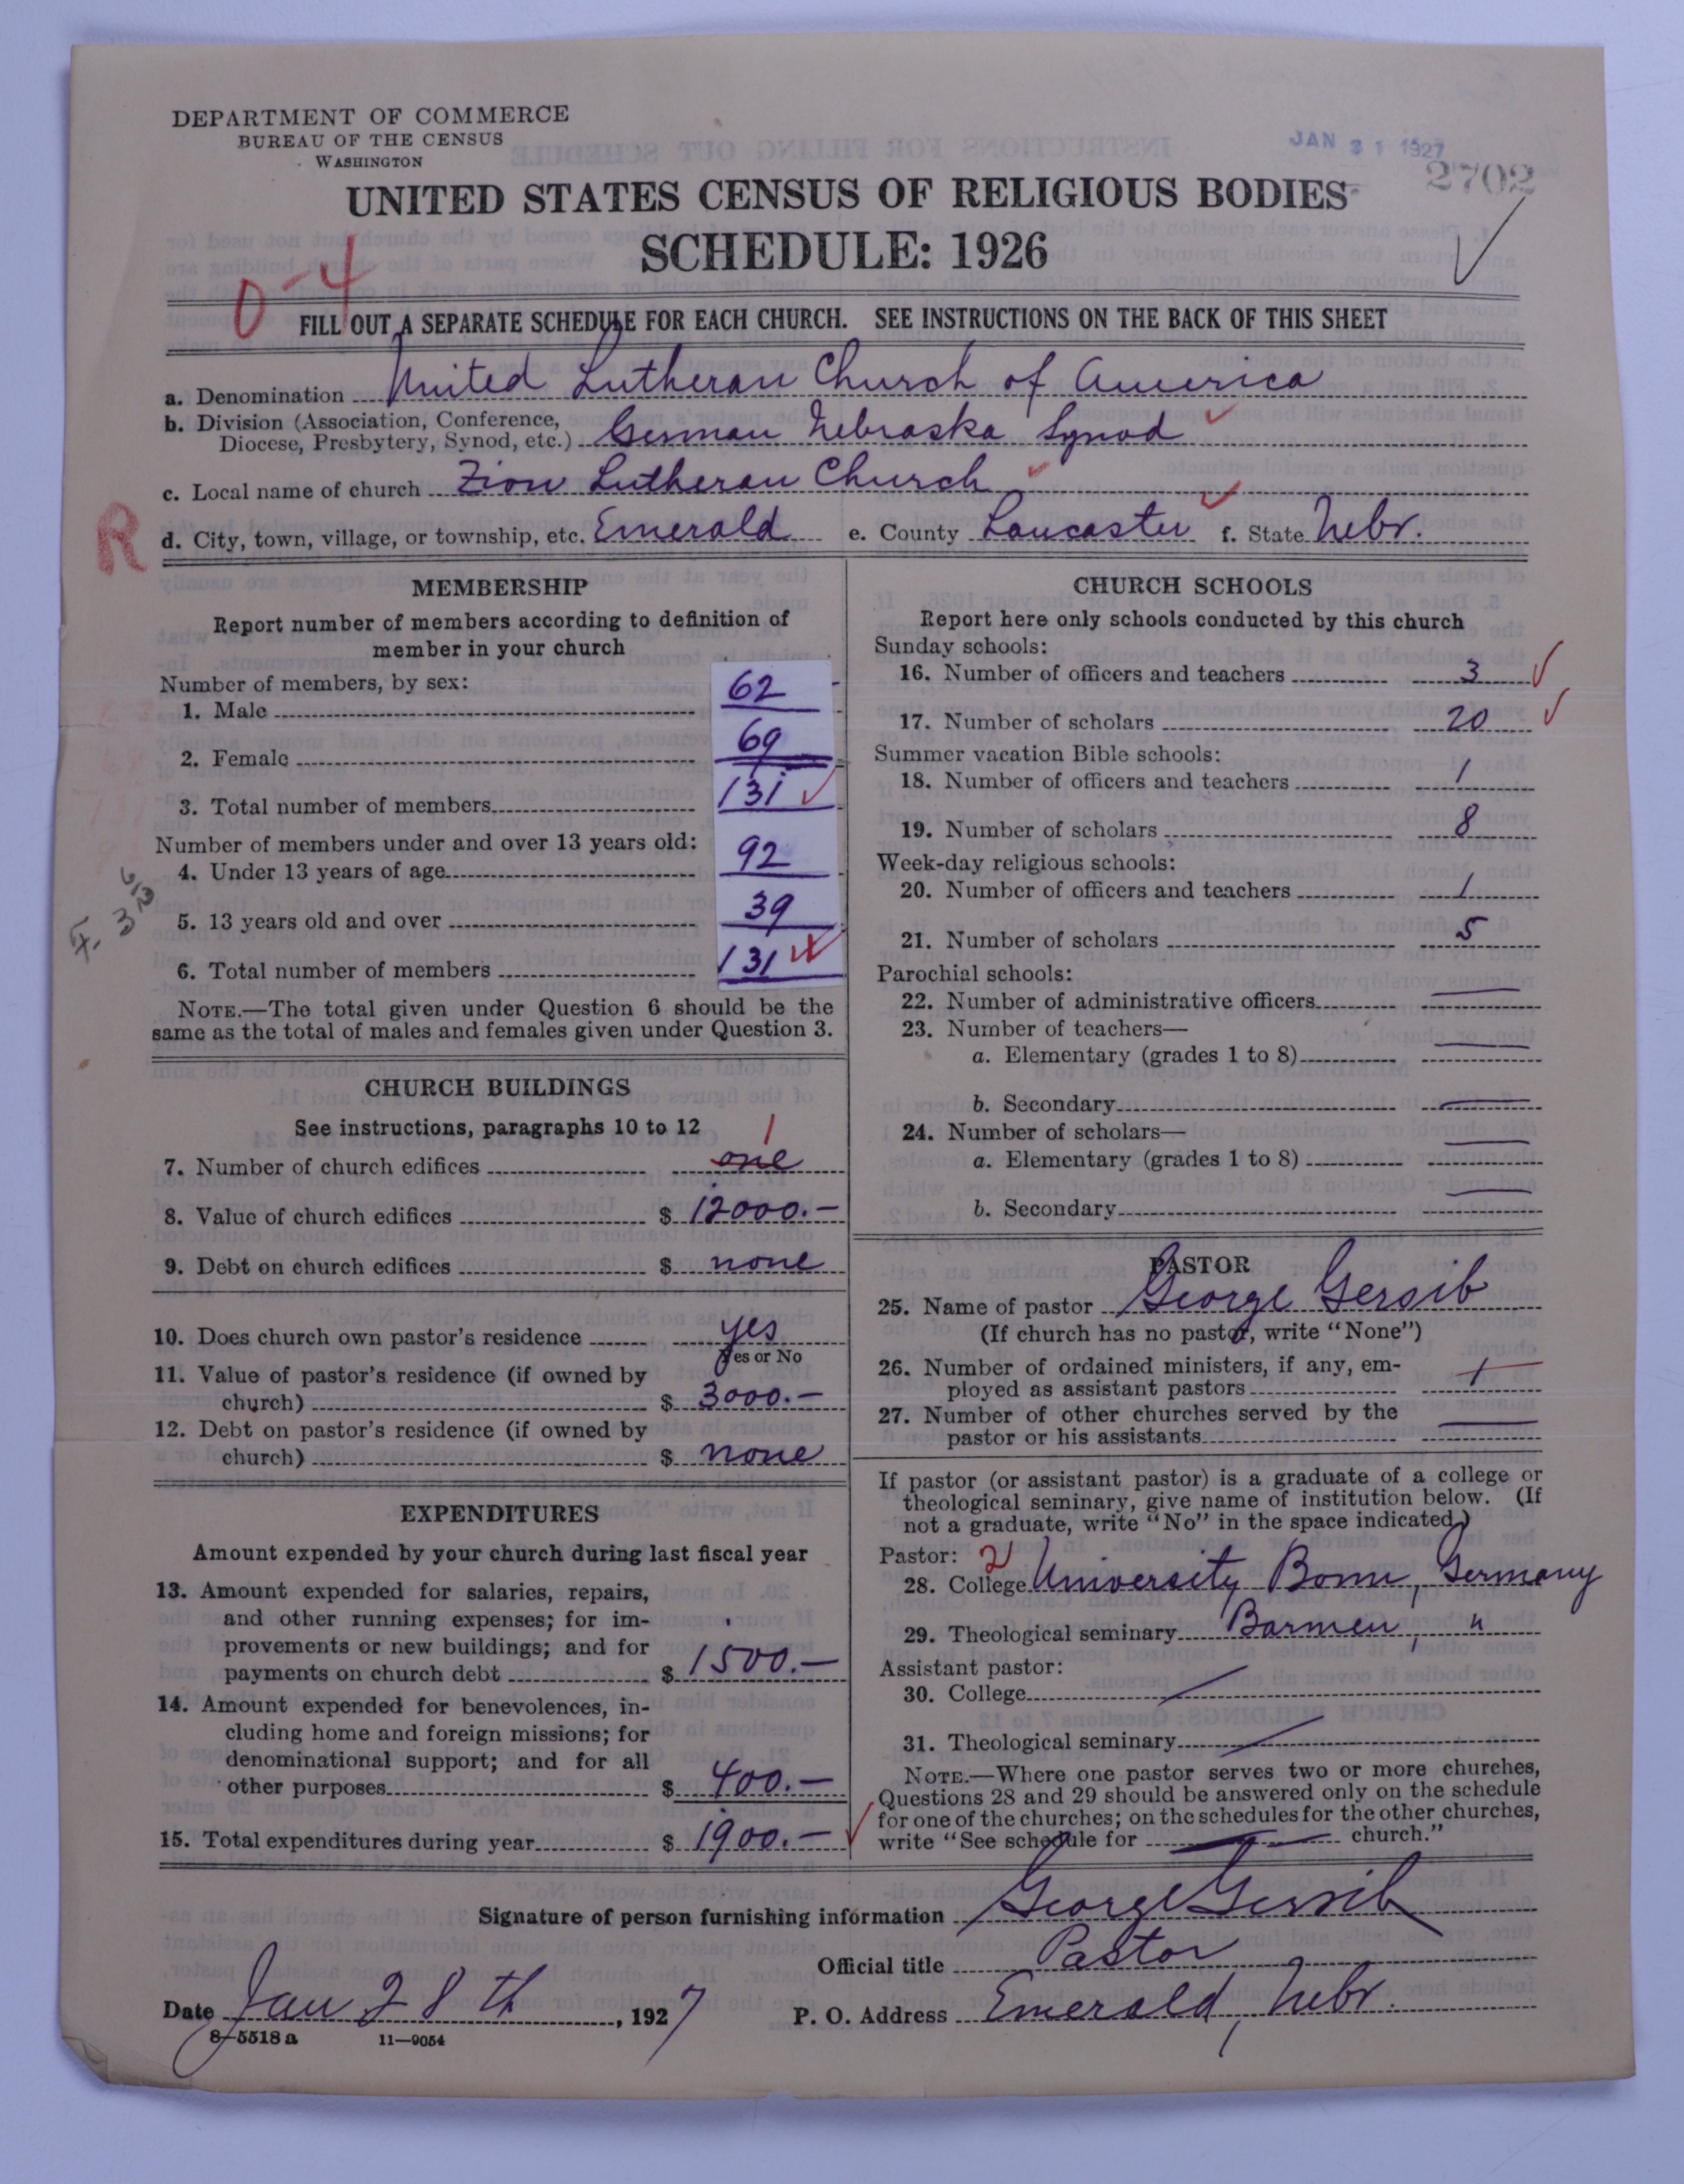 DEPARTMENT OF COMMERCE
BUREAU OF THE CENSUS
WASHINGTON
JAN 31 1927
2702
UNITED STATES CENSUS OF RELIGIOUS BODIES
SCHEDULE: 1926
0-4
FILL OUT A SEPARATE SCHEDULE FOR EACH CHURCH. SEE INSTRUCTIONS ON THE BACK OF THIS SHEET
a. Denomination United Lutheran Church of America
b. Division (Association, Conference,
Diocese, Presbytery, Synod, etc.) German Nebraska Synod
c. Local name of church Zion Lutheran Church
R
d. City, town, village, or township, etc. Emerald e. County Lancaster f. State Nebr.
MEMBERSHIP
Report number of members according to definition of
member in your church
Number of members, by sex:
1. Male 62
2. Female 69
3. Total number of members 131
Number of members under and over 13 years old:
4. Under 13 years of age 92
5. 13 years old and over 39
6. Total number of members 131
NOTE.—The total given under Question 6 should be the
same as the total of males and females given under Question 3.
CHURCH BUILDINGS
See instructions, paragraphs 10 to 12
1
7. Number of church edifices one
8. Value of church edifices $ 12000.—
9. Debt on church edifices $ none
10. Does church own pastor's residence yes
Yes or No
11. Value of pastor's residence (if owned by
church) $ 3000.—
12. Debt on pastor's residence (if owned by
church) $ none
EXPENDITURES
Amount expended by your church during last fiscal year
13. Amount expended for salaries, repairs,
and other running expenses; for im-
provements or new buildings; and for
payments on church debt $ 1500.—
14. Amount expended for benevolences, in-
cluding home and foreign missions; for
denominational support; and for all
other purposes $ 400.—
15. Total expenditures during year $ 1900.—
CHURCH SCHOOLS
Report here only schools conducted by this church
Sunday schools:
16. Number of officers and teachers 3
17. Number of scholars 20
Summer vacation Bible schools:
18. Number of officers and teachers 1
19. Number of scholars 8
Week-day religious schools:
20. Number of officers and teachers 1
21. Number of scholars 5
Parochial schools:
22. Number of administrative officers —
23. Number of teachers—
a. Elementary (grades 1 to 8) —
b. Secondary —
24. Number of scholars—
a. Elementary (grades 1 to 8) —
b. Secondary —
PASTOR
25. Name of pastor George Gersib
(If church has no pastor, write "None")
26. Number of ordained ministers, if any, em-
ployed as assistant pastors 1
27. Number of other churches served by the
pastor or his assistants —
If pastor (or assistant pastor) is a graduate of a college or
theological seminary, give name of institution below. (If
not a graduate, write "No" in the space indicated.)
Pastor: 2
28. College University Bonn, Germany
29. Theological seminary Barmen, "
Assistant pastor:
30. College
31. Theological seminary
NOTE.—Where one pastor serves two or more churches,
Questions 28 and 29 should be answered only on the schedule
for one of the churches; on the schedules for the other churches,
write "See schedule for — church."
Signature of person furnishing information George Gersib
Official title Pastor
Date Jan 28th, 1927 P. O. Address Emerald, Nebr.
8—5518 a 11—9054